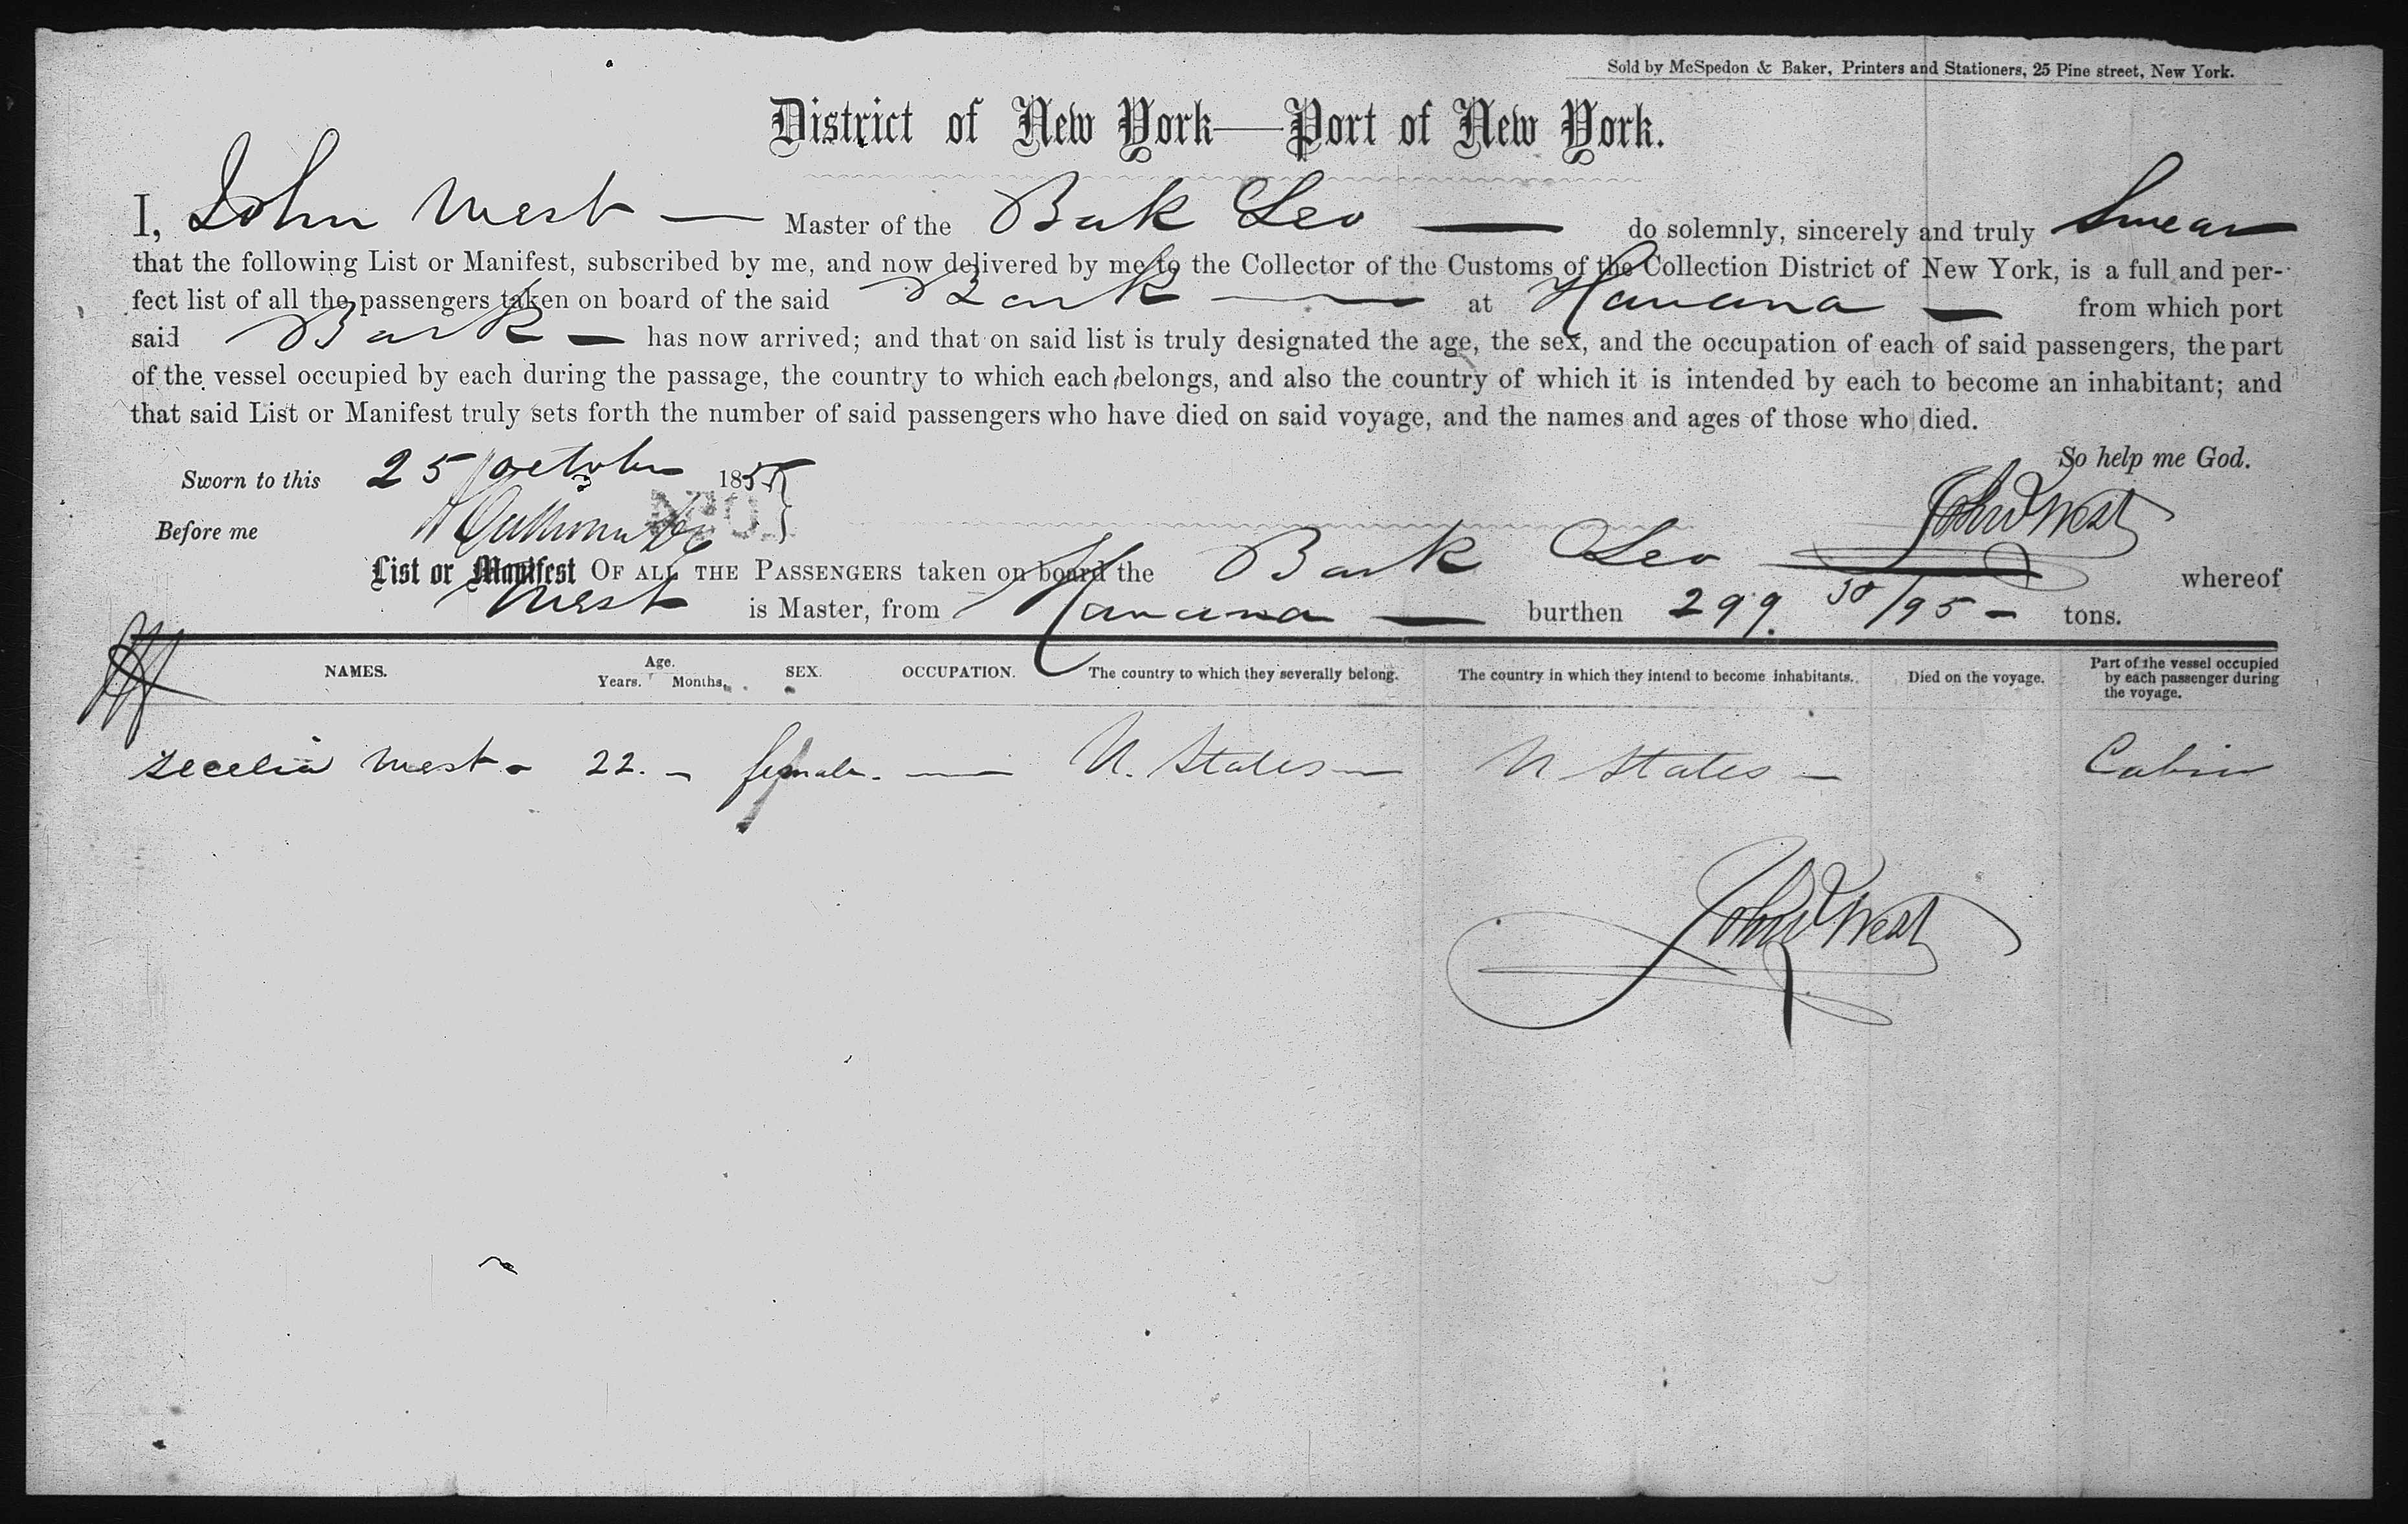 Sold by McSpedon & Baker, Printers and Stationers, 25 Pine street, New York.
District of New York—Port of New York.
I, John West — Master of the Bark Leo — do solemnly, sincerely and truly Swear
that the following List or Manifest, subscribed by me, and now delivered by me to the Collector of the Customs of the Collection District of New York, is a full and per-
fect list of all the passengers taken on board of the said Bark — at Havana — from which port
said Bark — has now arrived; and that on said list is truly designated the age, the sex, and the occupation of each of said passengers, the part
of the vessel occupied by each during the passage, the country to which each belongs, and also the country of which it is intended by each to become an inhabitant; and
that said List or Manifest truly sets forth the number of said passengers who have died on said voyage, and the names and ages of those who died.
So help me God.
Sworn to this 25 October 1855
John West
Before me
List or Manifest OF ALL THE PASSENGERS taken on board the Bark Leo — whereof
West is Master, from Havana — burthen 299. 50/95 — tons.
NAMES. Age. Years. Months. SEX. OCCUPATION. The country to which they severally belong. The country in which they intend to become inhabitants. Died on the voyage. Part of the vessel occupied by each passenger during the voyage.
Cecelia West - 22. - female. — U. States — U States — Cabin
John West